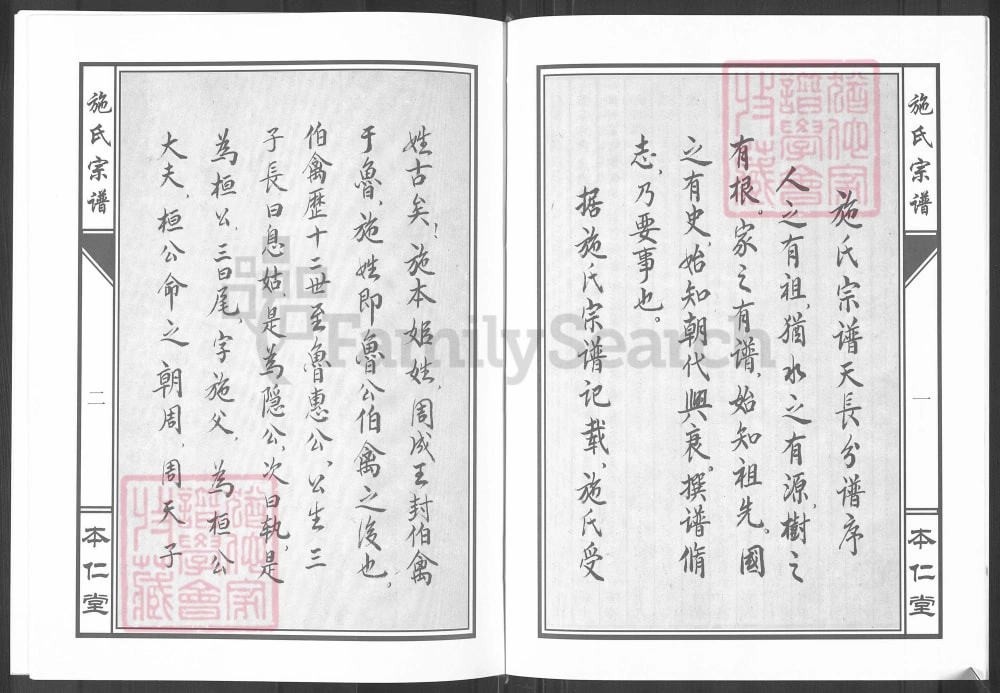 施氏宗谱
一
本仁堂
施氏宗谱天長分谱序
人之有祖,猶水之有源,樹之
有根。家之有谱,始知祖先。國
之有史,始知朝代興衰。撰谱脩
志,乃要事也。
据施氏宗谱记载,施氏受
姓古矣!施本姬姓,周成王封伯禽
于魯,施姓即魯公伯禽之後也。
伯禽歷十二世至魯惠公,公生三
子長曰息姑,是為隐公,次曰軌,是
為桓公,三曰尾,字施父,為桓公
大夫,桓公命之朝周,周天子
施氏宗谱
二
本仁堂
FamilySearch